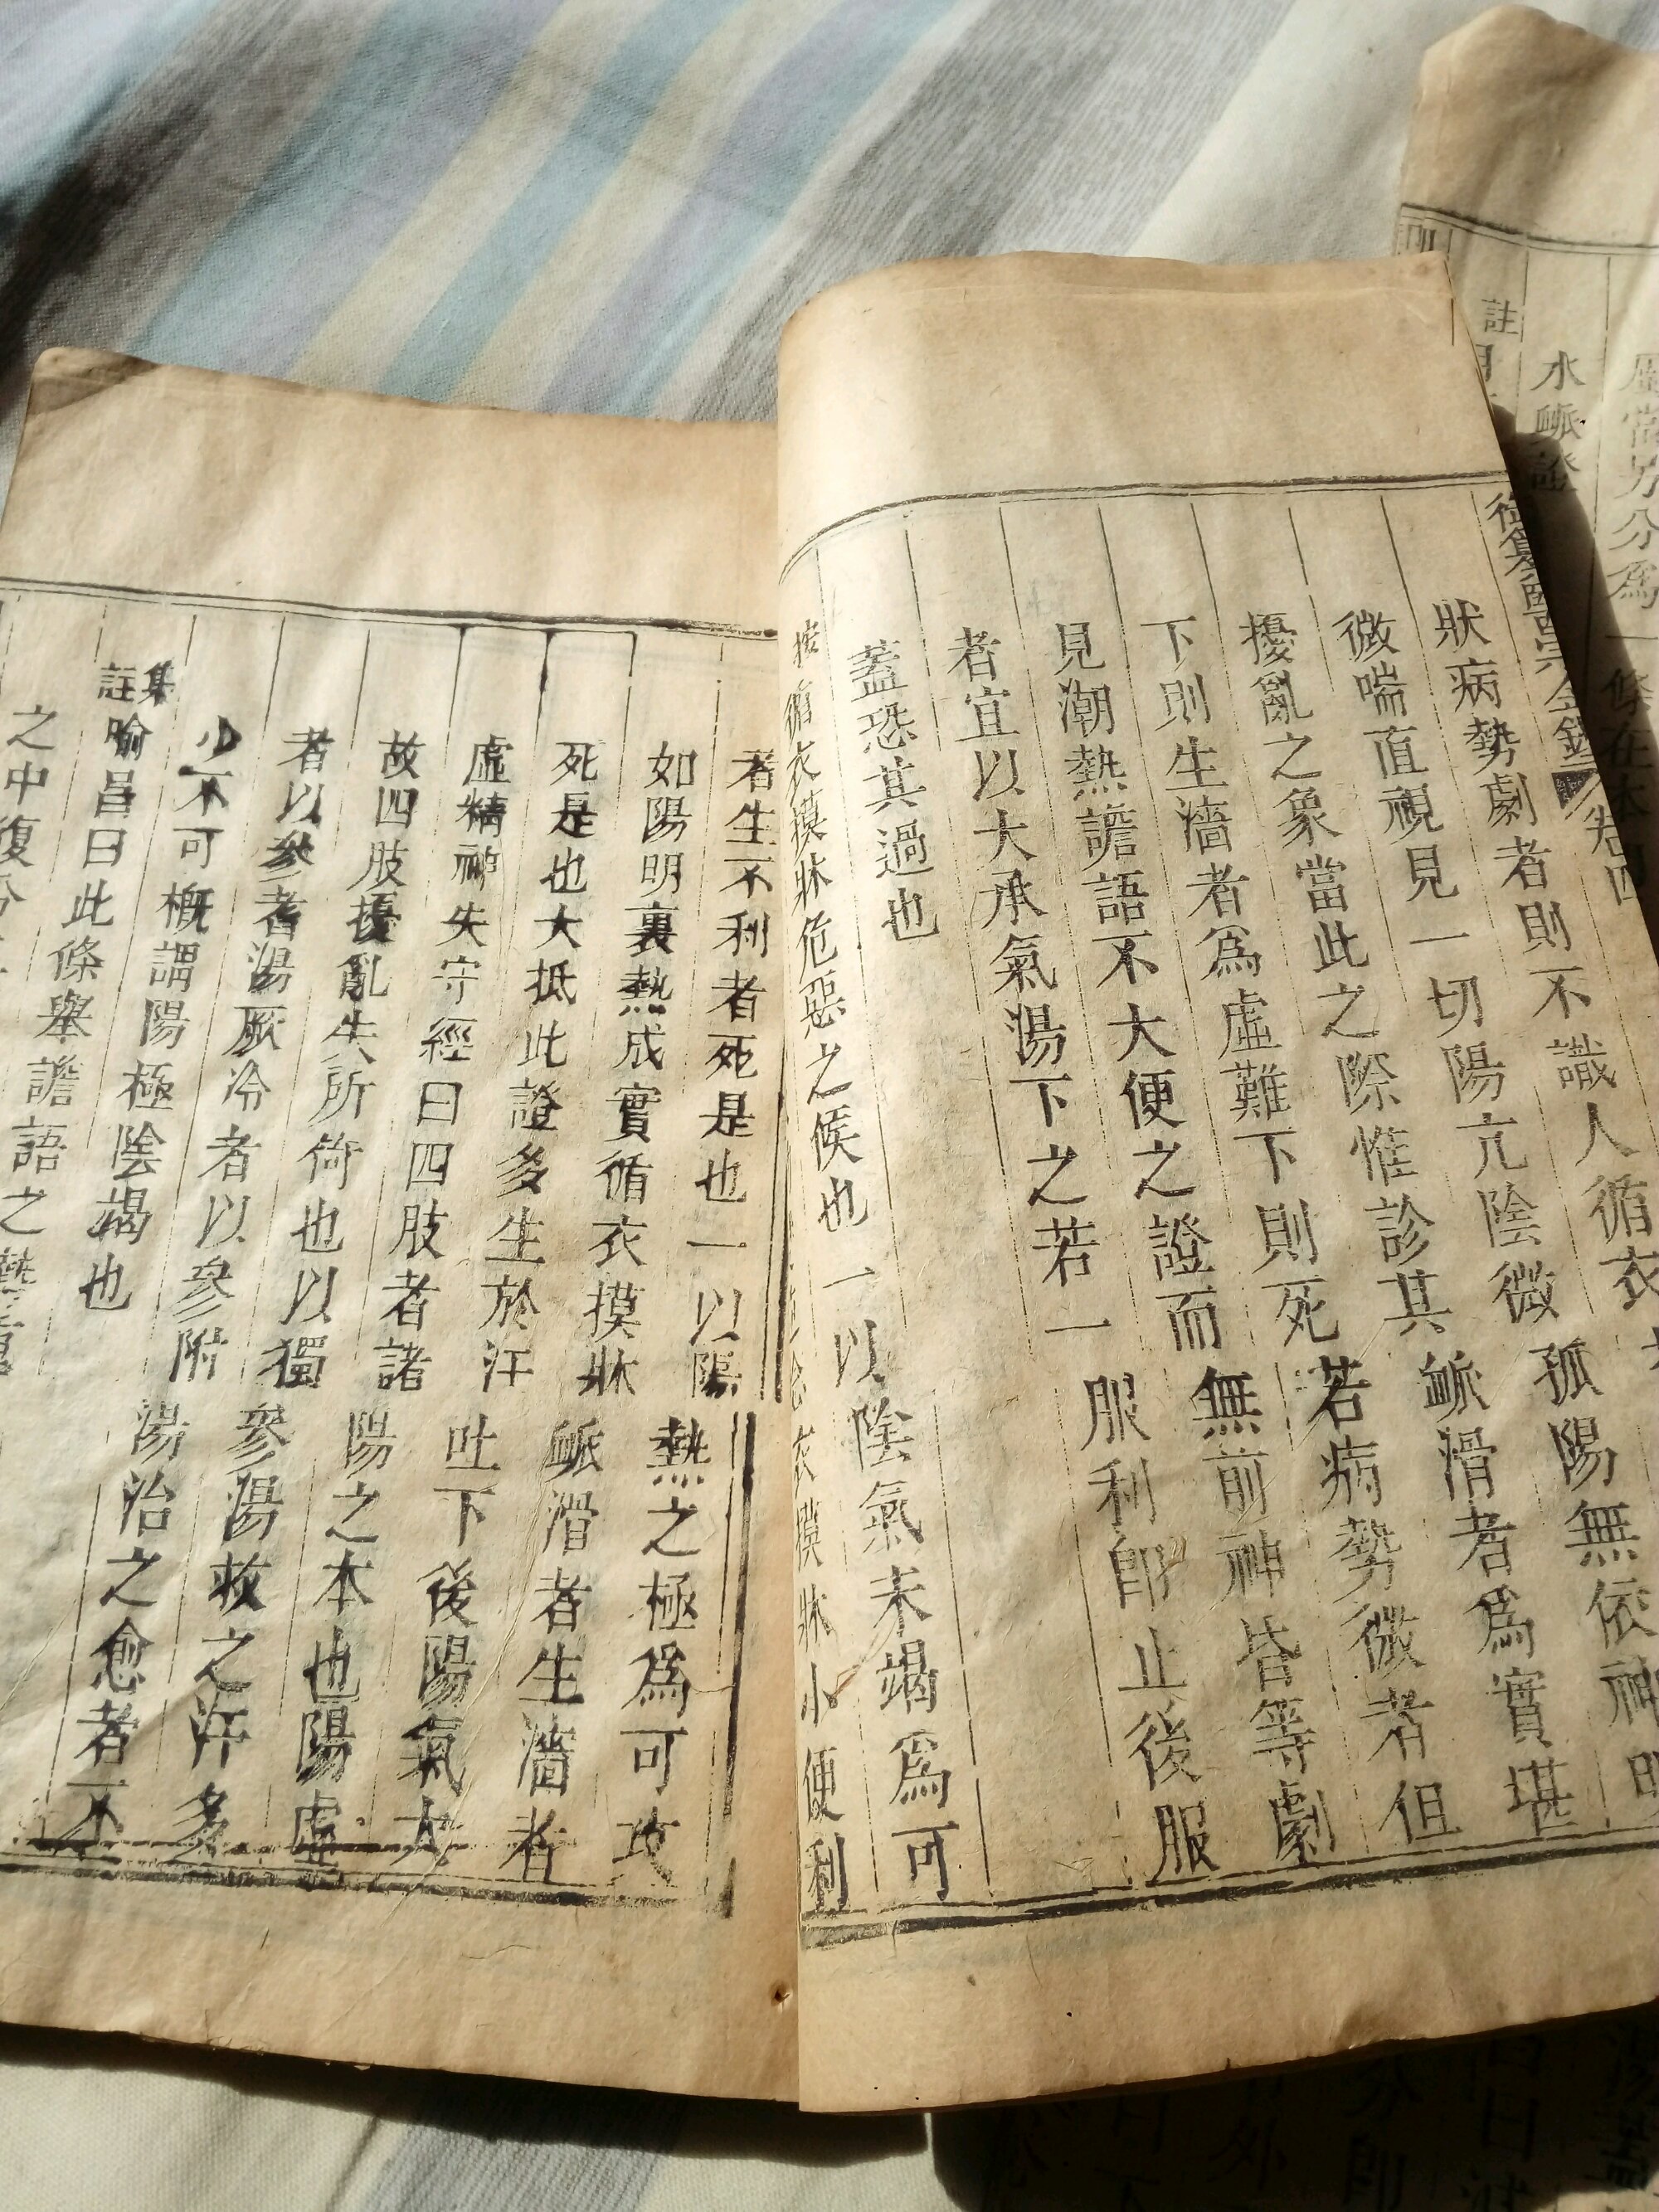 屬當另分爲一條在本
水衇證
註
御纂醫宗金鑑 卷四
狀病勢劇者則不識人循衣
微喘直視見一切陽亢陰微孤陽無依神明
擾亂之象當此之際惟診其衇滑者爲實堪
下則生濇者爲虛難下則死若病勢微者但
見潮熱譫語不大便之證而無前神昏等劇
者宜以大承氣湯下之若一服利即止後服
蓋恐其過也
按循衣摸牀危惡之候也一以陰氣未竭爲可
衣摸牀小便利
者生不利者死是也一以陽熱之極爲可攻
如陽明裏熱成實循衣摸牀衇滑者生濇者
死是也大抵此證多生於汗吐下後陽氣大
虛精神失守經曰四肢者諸陽之本也陽虛
故四肢擾亂失所倚也以獨參湯救之汗多
者以參耆湯厥冷者以參附湯治之愈者不
少不可槪謂陽極陰竭也
集註喻昌曰此條舉譫語之
之中復分